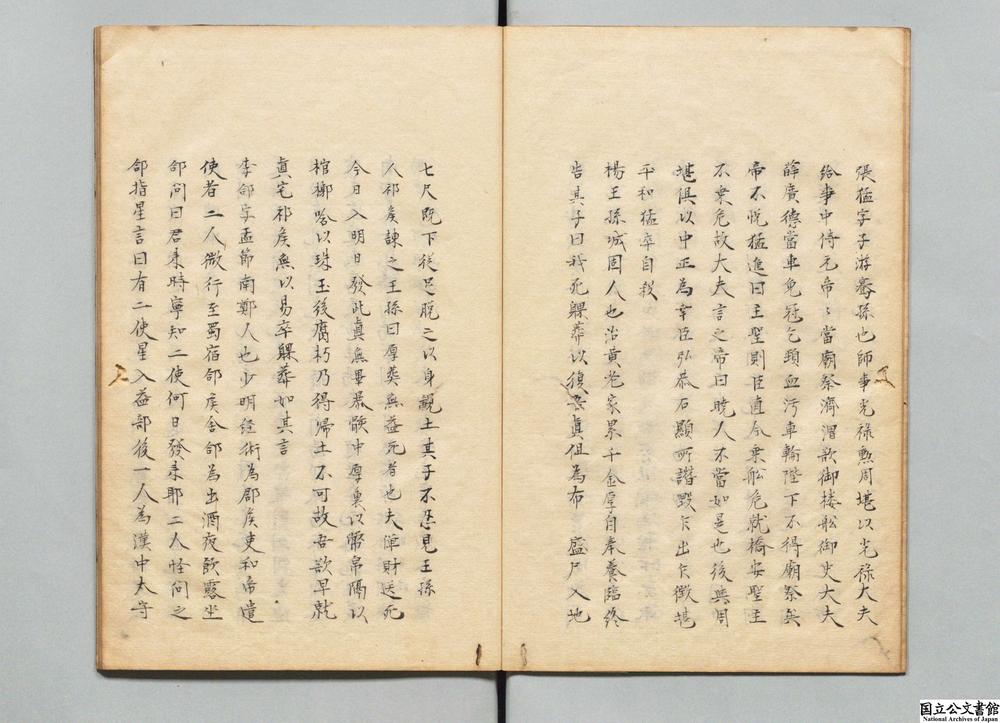 張猛字子游騫孫也師事光祿勲周堪以光祿大夫
給事中侍元帝〻當廟祭濟渭欲御楼舩御史大夫
薛廣德當車免冠乞頸血污車輪陛下不得廟祭矣
帝不悅猛進曰主聖則臣直今乗舩危就橋安聖主
不乗危故大夫言之帝曰曉人不當如是也後與周
堪俱以中正為宰臣弘恭石顯所譖毀乍出乍徴堪
平和猛卒自殺
楊王孫城固人也治黄老家累千金厚自奉養臨終
告其子曰我死躶葬以復吾真但為布　盛尸入地
七尺既下従足脫之以身親土其子不忍見王孫
人祁矦諌之王孫曰厚葬無益死者也夫殫財送死
今日入明日發此真無異暴骸中厚裹以幣帛隔以
棺槨唅以珠玉後腐朽乃得帰土不可故吾欲早就
真宅祁矦無以易卒躶葬如其言
李郃字孟節南鄭人也少明経術為郡矦吏和帝遣
使者二人微行至蜀宿郃矦舎郃為出酒夜飲露坐
郃問曰君来時寧知二使何日發来耶二人怪問之
郃指星言曰有二使星入益部後一人為漢中太守
国立公文書館
National Archives of Japan